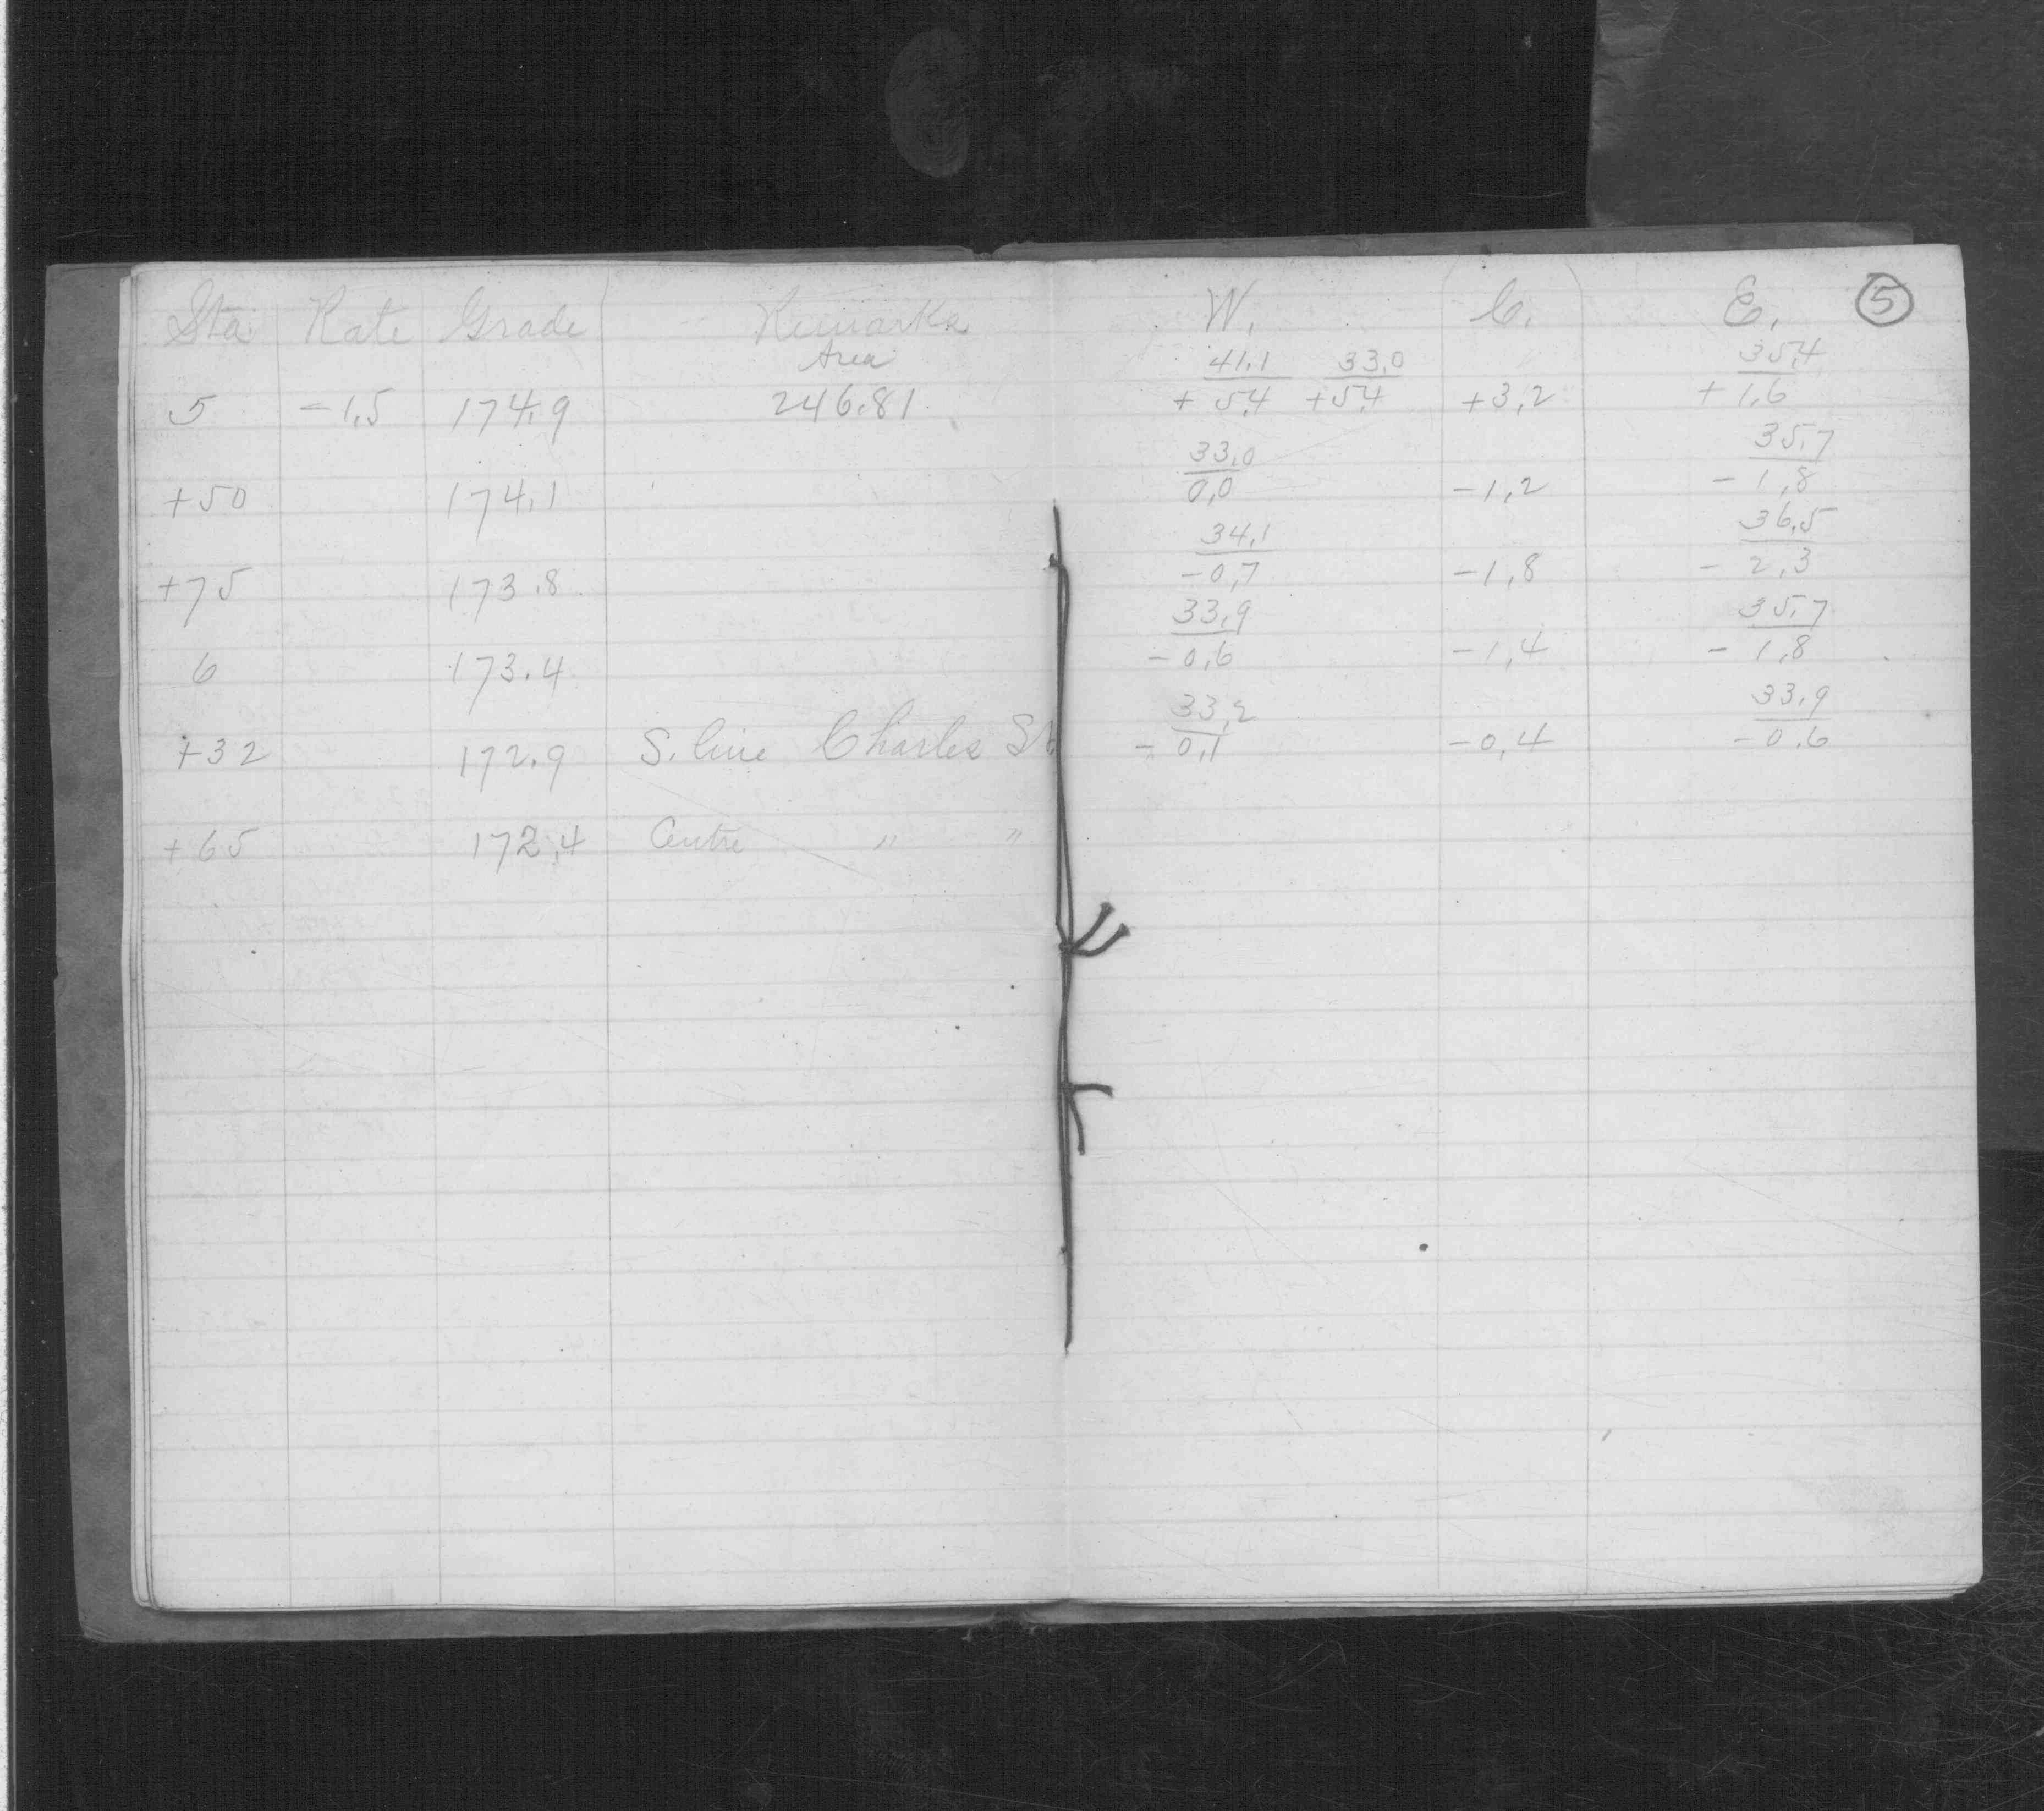 Sta. Rate Grade Remarks W. C. E. 5
Area 41.1 33.0 35.4
5 -1.5 174.9 246.81 +5.4 +5.4 +3.2 +1.6
33.0 35.7
+50 174.1 0.0 -1.2 -1.8
34.1 36.5
+75 173.8 -0.7 -1.8 -2.3
33.9 35.7
6 173.4 -0.6 -1.4 -1.8
33.2 33.9
+32 172.9 S. line Charles St. -0.1 -0.4 -0.6
+65 172.4 Centre " "